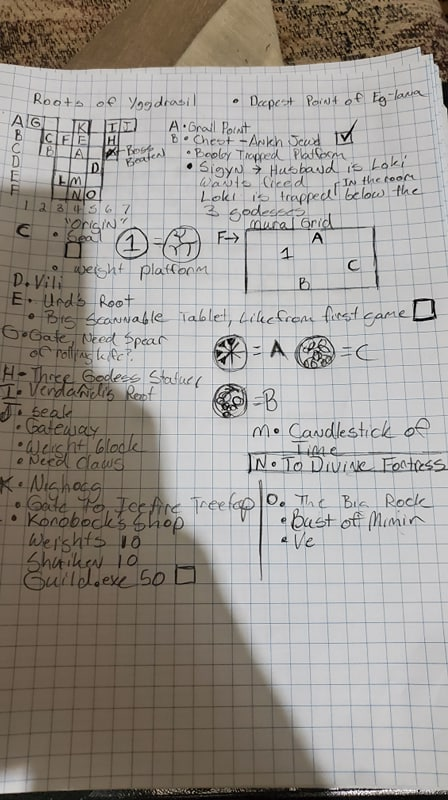 Roots of Yggdrasil • Deepest Point of Eg-lana
A G K I I
B C F E H
C B A X Boss Beaten
D D
E L M
F N O
1 2 3 4 5 6 7
A • Grail Point
B • Chest - Ankh Jewel
• Booby Trapped Platform
• Sigyn → Husband is Loki
Wants freed
In the room
Loki is trapped below the
3 godesses
C • "Origin"
Seal
1 =
• weight platform
Mural Grid
F→ A
1
C
B
D. Vili
E • Urd's Root
• Big Scannable Tablet, Like from first game
G • Gate, Need Spear
= A = C
= B
H - Three Godess Statues
I • Verdandi's Root
J • Seal
• Gateway
• Weight block
• Need Claws
M • Candlestick of
Time
N • To Divine Fortress
K • Nighogg
• Gate To Icefire Treetop
• Konobock's Shop
Weights 10
Shuriken 10
Guild.exe 50
O. The Big Rock
• Bust of Mimin
• Ve